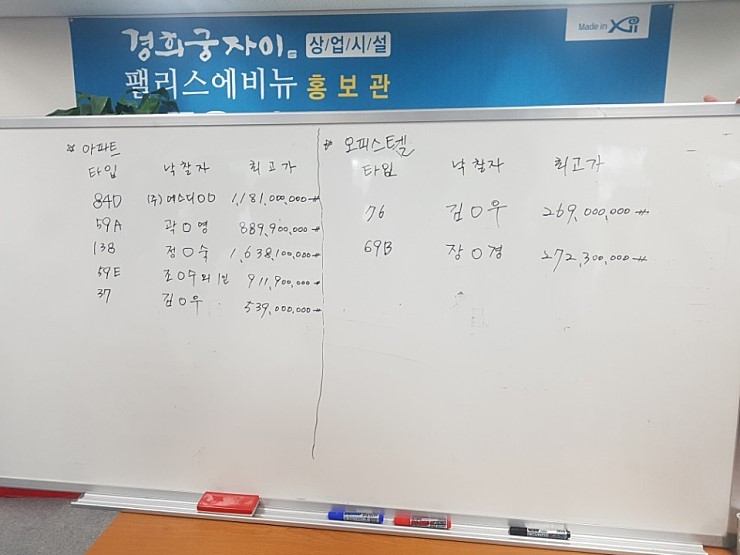 경희궁자이 상/업/시/설
Made in Xi
팰리스에비뉴 홍보관
* 아파트
타입 낙찰자 최고가
84D (주)에스디OO 1,181,000,000
59A 곽O영 889,900,000
138 정O숙 1,638,100,000
59E 조O수외1인 911,900,000
37 김O우 539,000,000
* 오피스텔
타입 낙찰자 최고가
76 김O우 269,000,000
69B 장O경 272,300,000